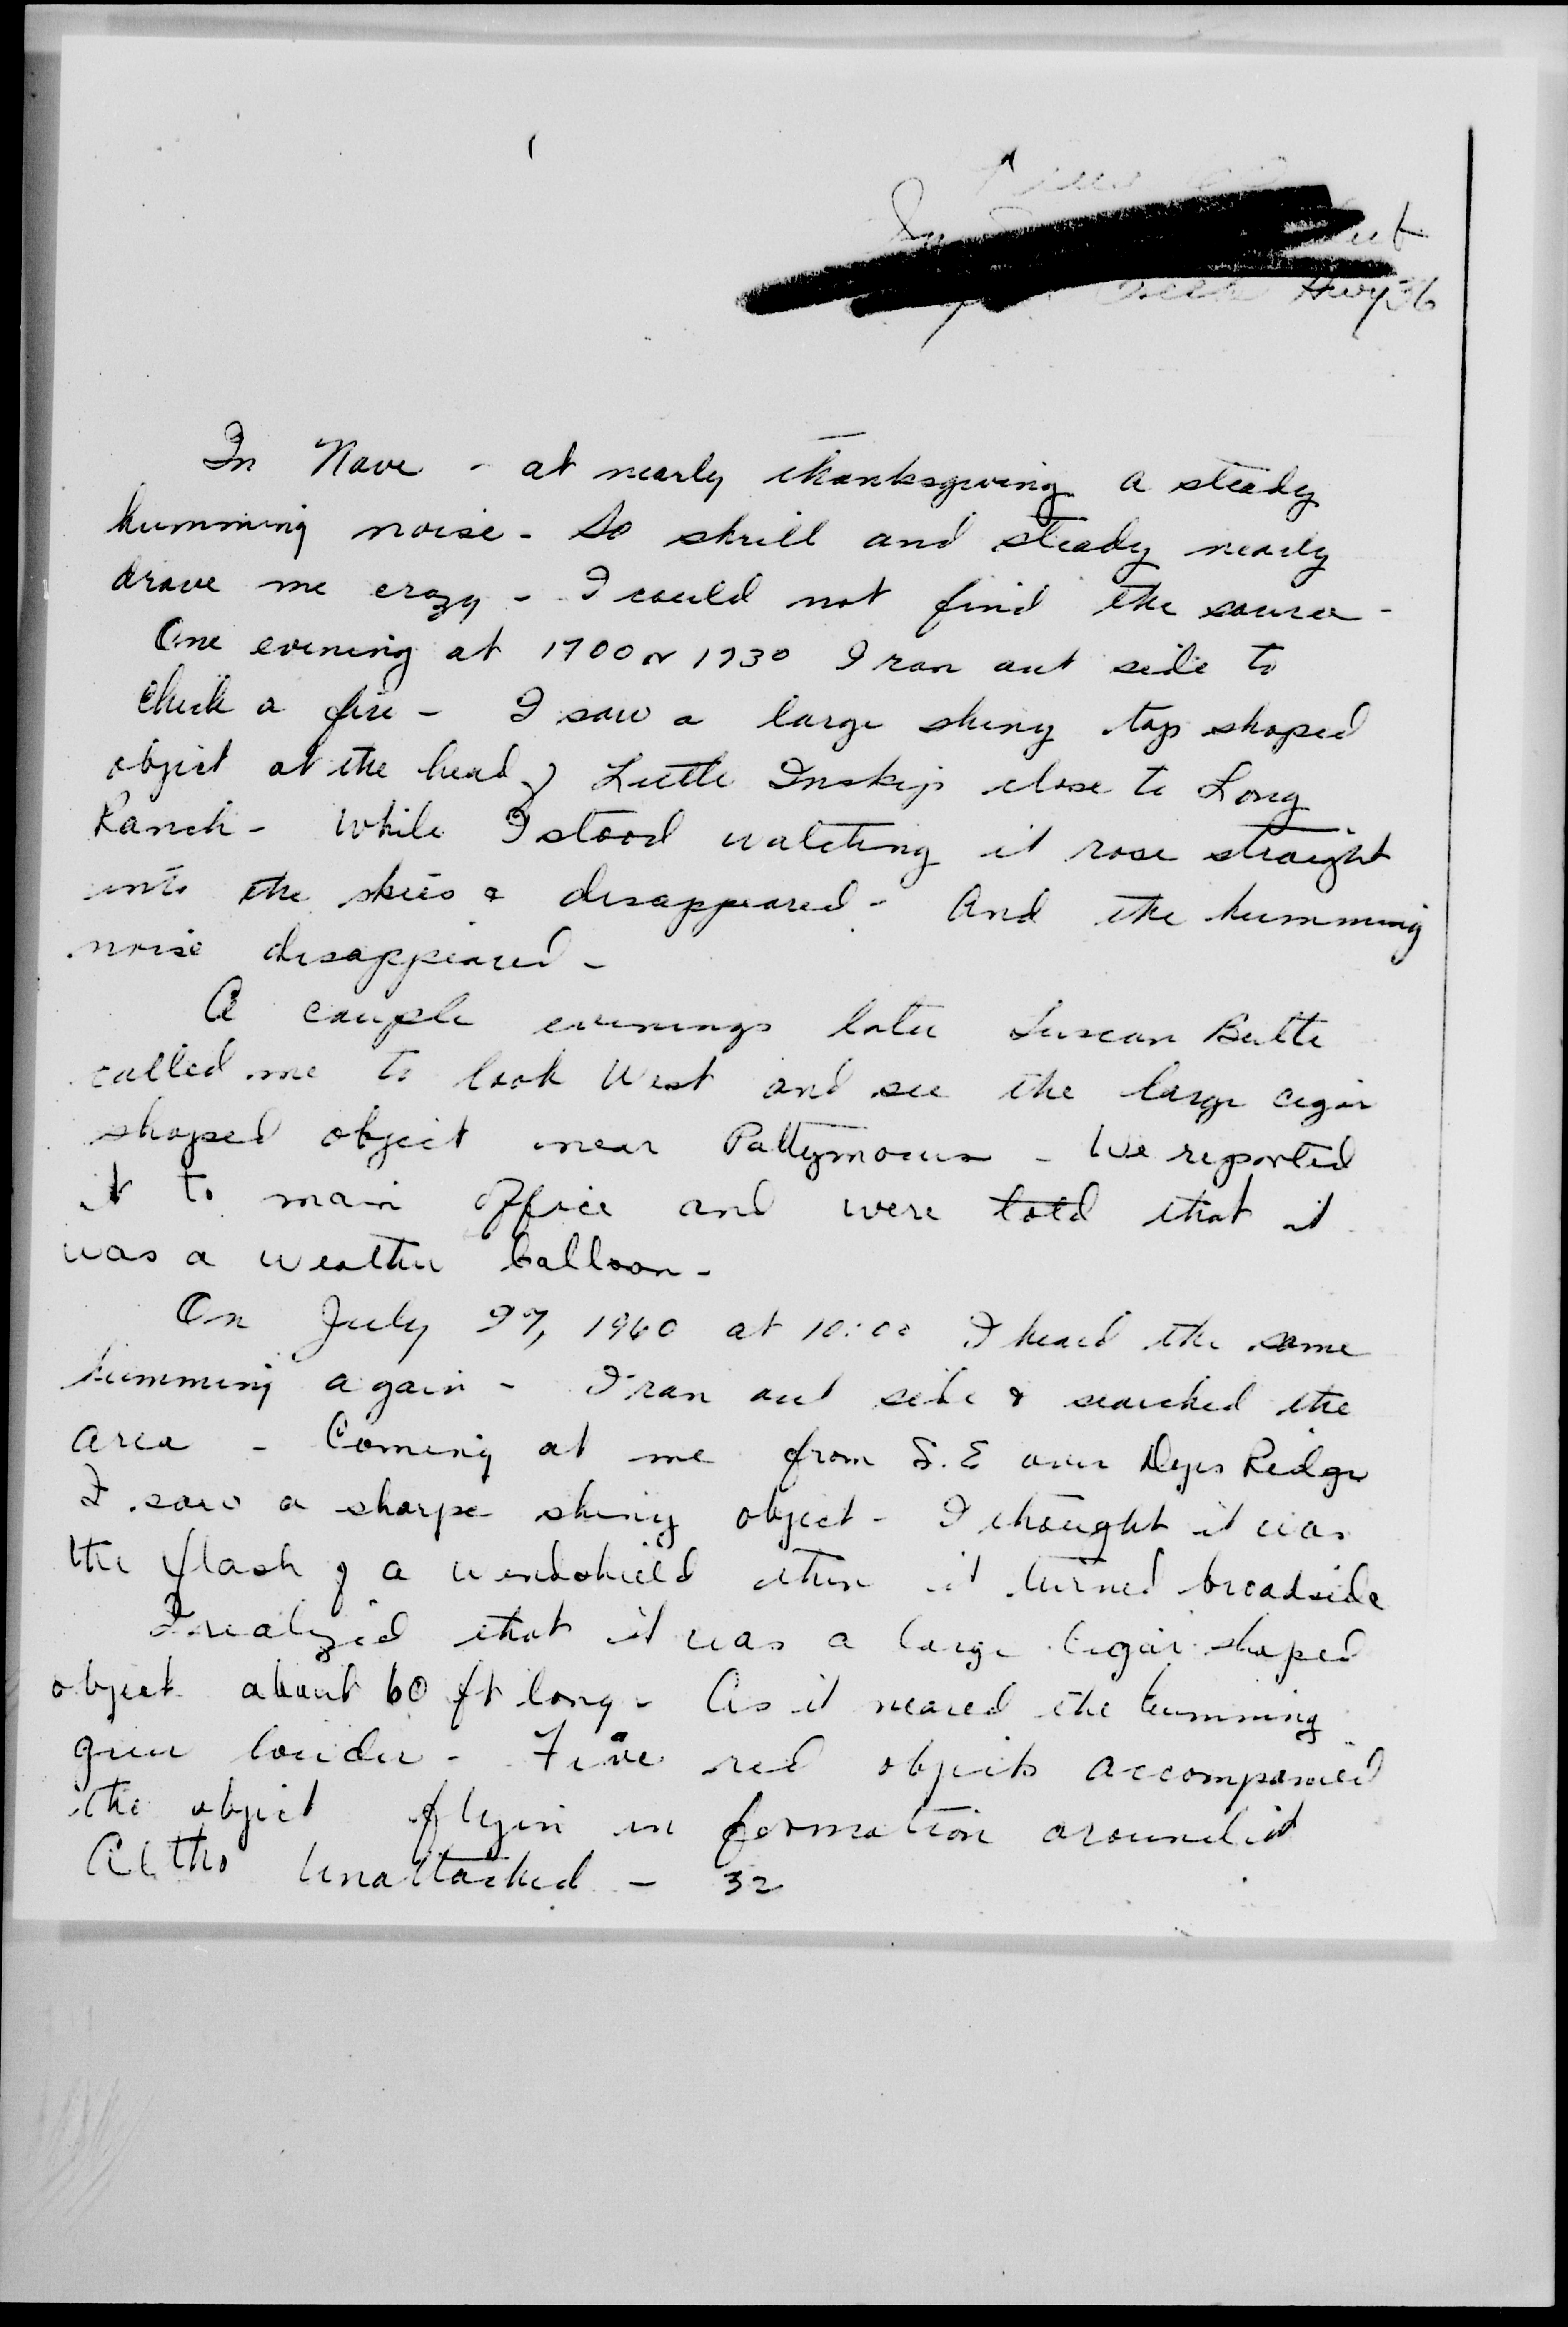 Hwy 36
In Nove - at nearly thanksgiving a steady
humming noise - So shrill and steady nearly
drove me crazy - I could not find the source -
One evening at 1700 or 1730 I ran out side to
Check a fire - I saw a large shiny top shaped
object at the head of Little Inskip close to Long
Ranch - While I stood watching it rose straight
into the skies & disappeared - And the humming
noise disappeared -
A couple evenings later Tuscan Butte
called me to look West and see the large cigar
shaped object near Pattymocus - We reported
it to main office and were told that it
was a weather balloon -
On July 27, 1960 at 10:00 I heard the same
humming again - I ran out side & searched the
area - Coming at me from S.E over Dyes Ridge
I saw a sharpe shiny object - I thought it was
the flash of a windshield then it turned broadside
I realized that it was a large Cigar shaped
object about 60 ft long - As it neared the humming
grew louder - Five red objects accompanied
the object flyin in formation around it
Altho Unattached - 32